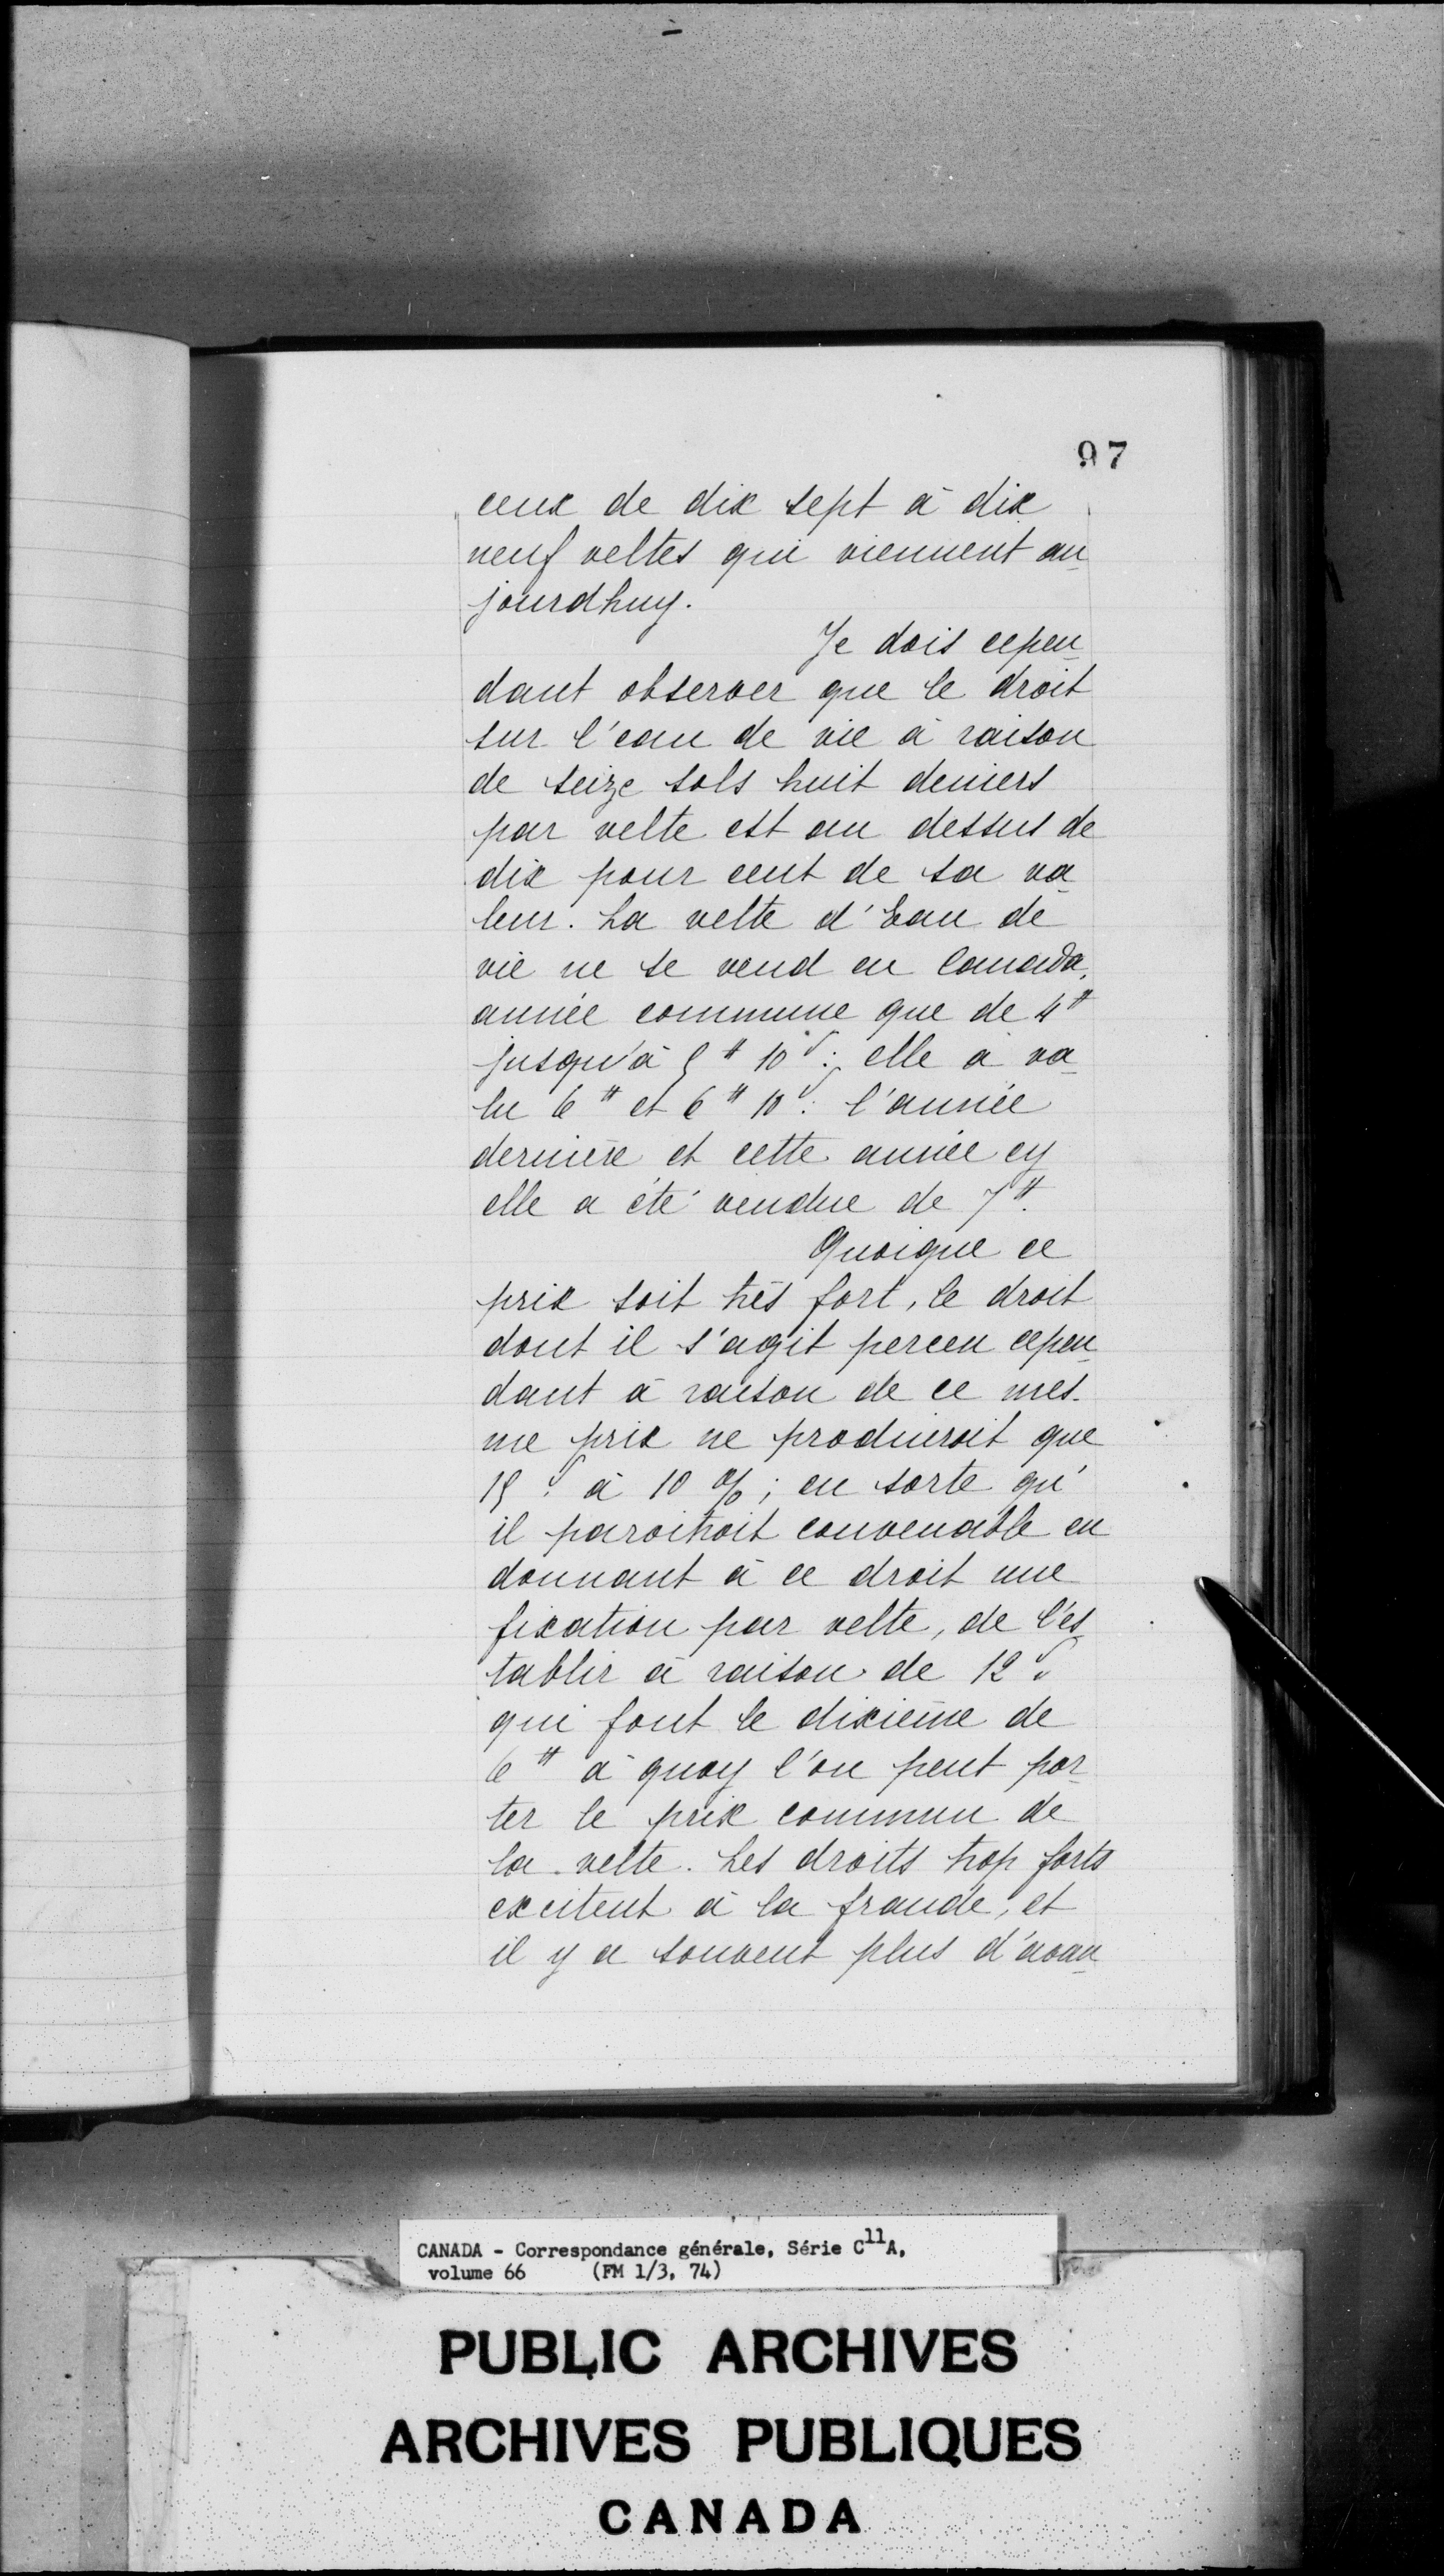 97
ceux de dix sept à dix
neuf veltes qui viennent au
jourdhuy.
Je dois cepen
dant observer que le droit
sur l'eau de vie à raison
de seize sols huit deniers
par velte est au dessus de
dix pour cent de sa va
leur. La velte d'Eau de
vie ne se vend en Canada,
année commune que de 4#
jusqu'à 5# 10s: elle a va
lu 6# et 6# 10s: l'année
dernière et cette année cy
elle a été vendue de 7#.
Quoique ce
prix soit très fort, le droit
dont il s'agit perceu cepen
dant à raison de ce mes-
me prix ne produiroit que
15s à 10 %; en sorte qu'
il paroitroit convenable en
donnant à ce droit une
fixation par velte, de l'es
tablir à raison de 12s
qui font le dixième de
6# à quoy l'on peut por
ter le prix commun de
la velte. Les droits trop forts
excitent à la fraude, et
il y a souvent plus d'avan
CANADA - Correspondance générale, Série C11A,
volume 66 (FM 1/3, 74)
PUBLIC ARCHIVES
ARCHIVES PUBLIQUES
CANADA